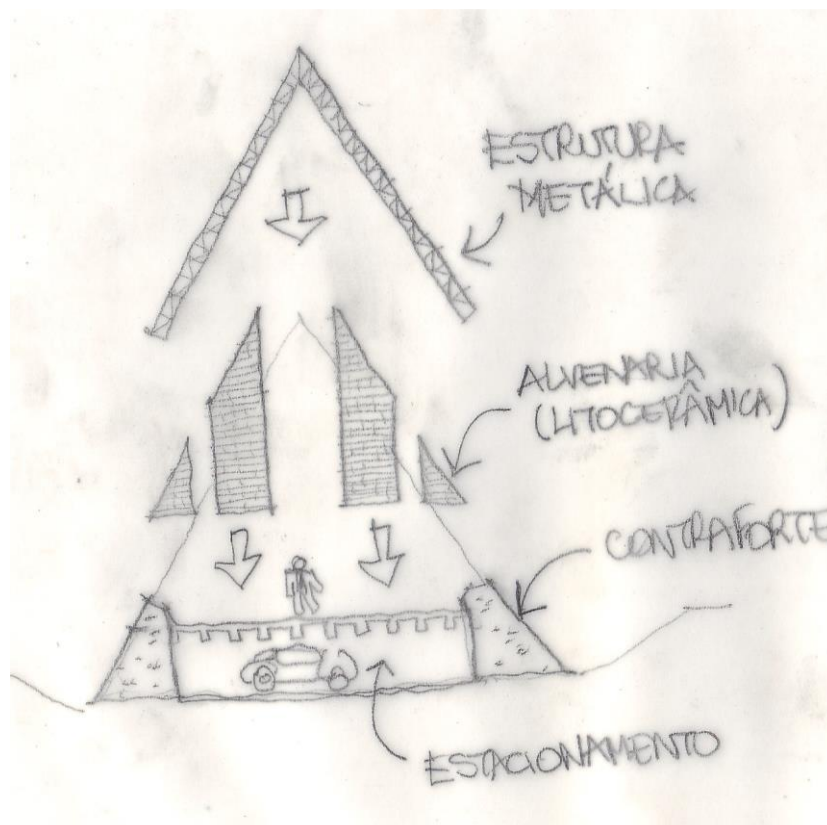 ESTRUTURA
METÁLICA
ALVENARIA
(LITOCERÂMICA)
CONTRAFORTE
ESTACIONAMENTO